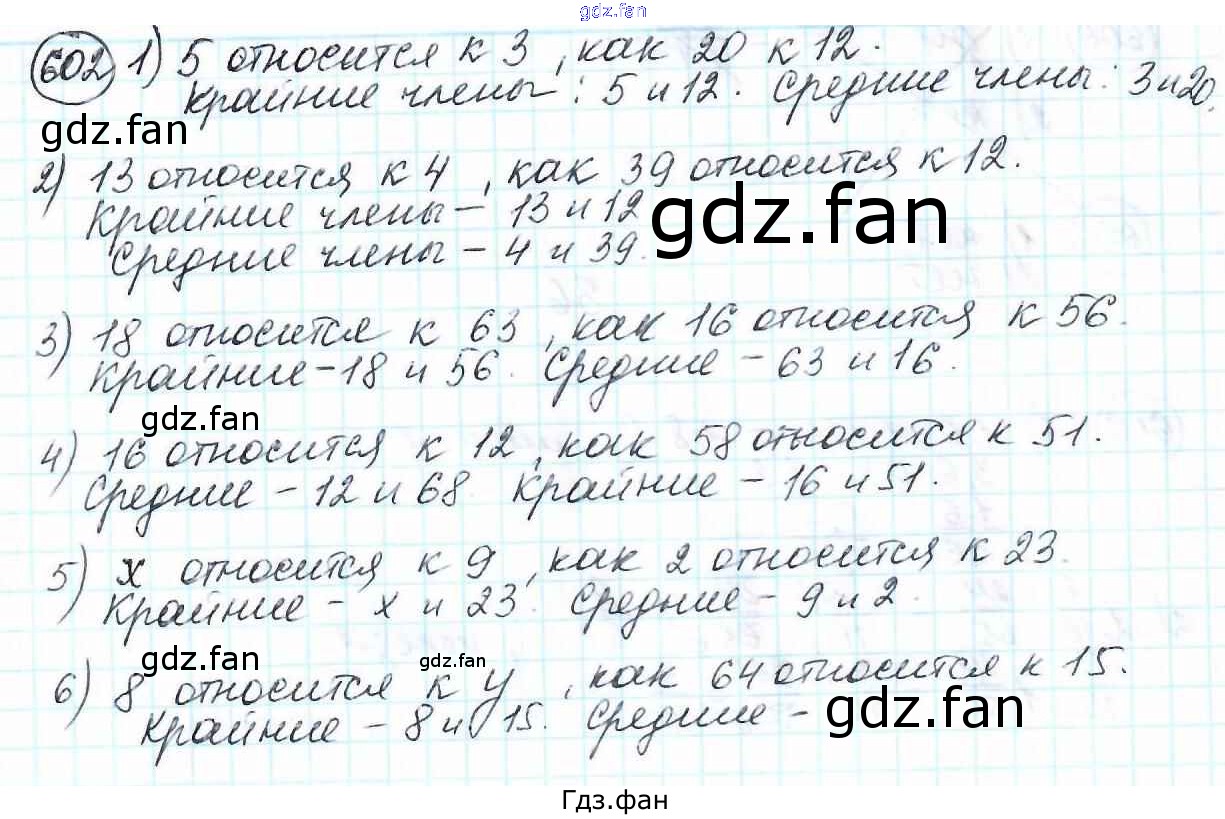 gdz.fan
602 1) 5 относится к 3, как 20 к 12.
Крайние члены: 5 и 12. Средние члены: 3 и 20.
gdz.fan
2) 13 относится к 4, как 39 относится к 12.
Крайние члены – 13 и 12
gdz.fan
Средние члены – 4 и 39.
3) 18 относится к 63, как 16 относится к 56.
Крайние – 18 и 56. Средние – 63 и 16.
gdz.fan
4) 16 относится к 12, как 58 относится к 51.
Средние – 12 и 68. Крайние – 16 и 51.
5) х относится к 9, как 2 относится к 23.
Крайние – х и 23. Средние – 9 и 2.
gdz.fan
gdz.fan
6) 8 относится к у, как 64 относится к 15.
Крайние – 8 и 15. Средние –
gdz.fan
Гдз.фан